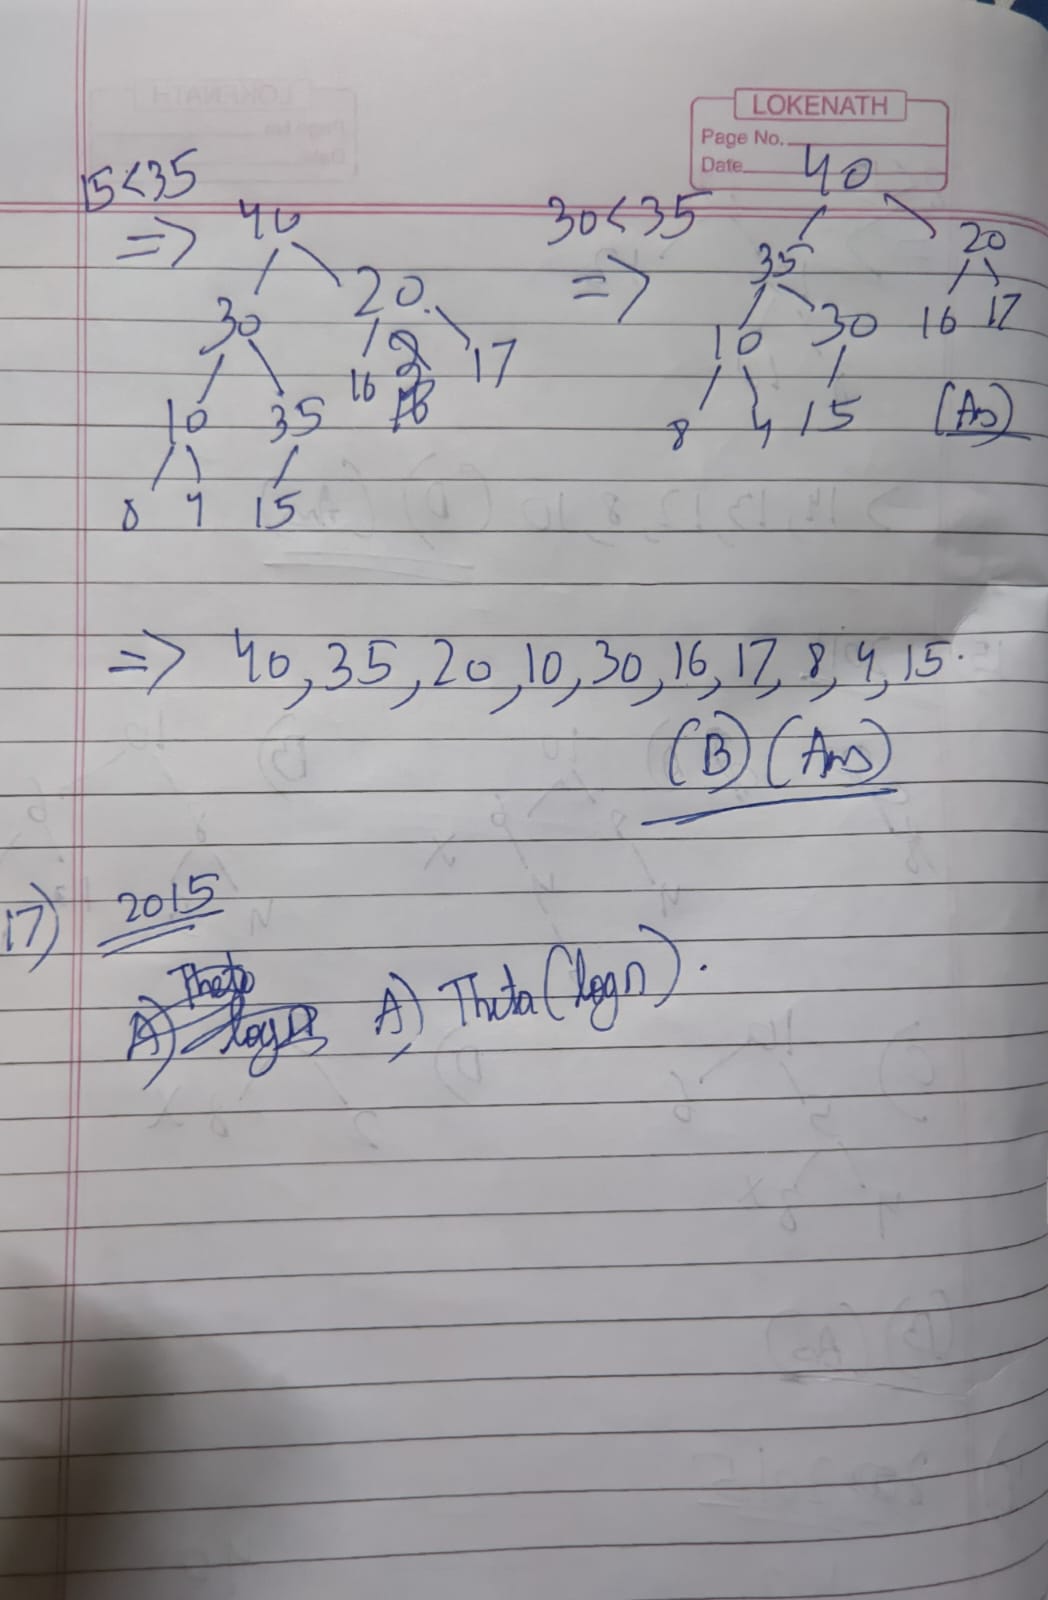 LOKENATH
Page No.
Date
15<35
=>
40
30 20
10 35 16 17
8 4 15
30<35
=>
40
35 20
10 30 16 17
8 4 15 (As)
=> 40, 35, 20, 10, 30, 16, 17, 8, 4, 15.
(B) (Ans)
17) 2015
A) Theta logn A) Theta (logn).